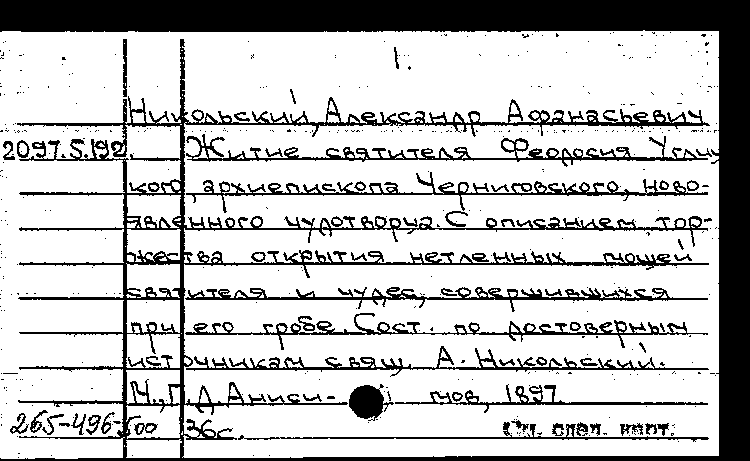 1.
Никольский, Александр Афанасьевич
2097.5.192. Житие святителя Феодосия Углиц
кого, архиепископа Черниговского, ново-
явленного чудотворца. С описанием тор-
жества открытия нетленных мощей
святителя и чудес, совершившихся
при его гробе. Сост. по достоверным
источникам свящ. А. Никольский.
М., Г.Д. Аниси- мов, 1897.
265-496-500 36с. См. след. карт.